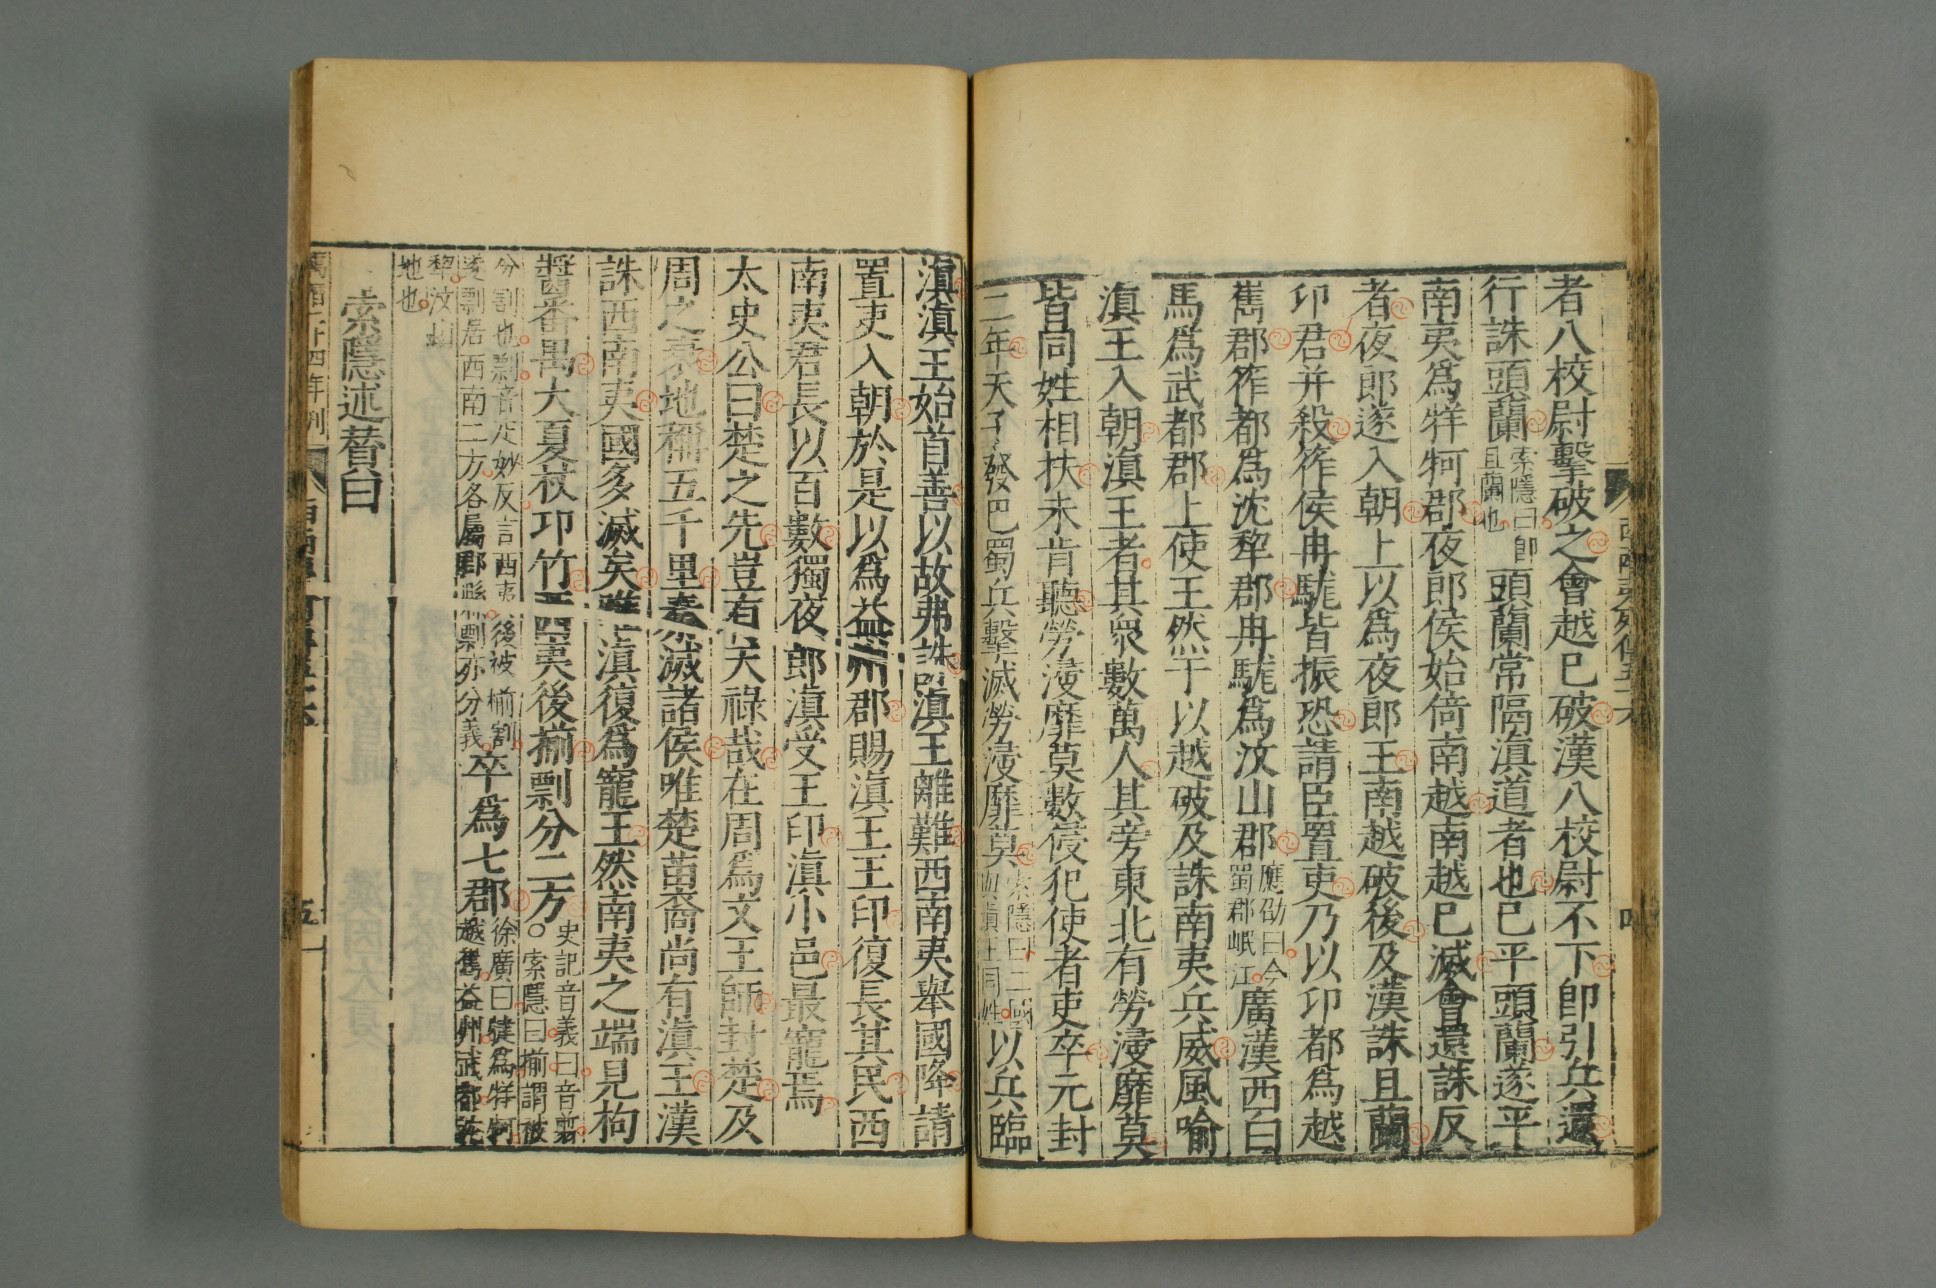 者八校尉擊破之會越已破漢八校尉不下即引兵還
行誅頭蘭索隱曰即且蘭也頭蘭常隔滇道者也已平頭蘭遂平
南夷爲牂牁郡夜郎侯始倚南越南越已滅會還誅反
者夜郎遂入朝上以爲夜郎王南越破後及漢誅且蘭
卬君并殺筰侯冉駹皆振恐請臣置吏乃以卬都爲越
嶲郡筰都爲沈犂郡冉駹爲汶山郡應劭曰今蜀郡岷江廣漢西白
馬爲武都郡上使王然于以越破及誅南夷兵威風喻
滇王入朝滇王者其衆數萬人其旁東北有勞浸靡莫
皆同姓相扶未肯聽勞浸靡莫數侵犯使者吏卒元封
二年天子發巴蜀兵擊滅勞浸靡莫索隱曰二國與滇王同姓以兵臨
滇滇王始首善以故弗誅滇王離難西南夷舉國降請
置吏入朝於是以爲益州郡賜滇王王印復長其民西
南夷君長以百數獨夜郎滇受王印滇小邑最寵焉
太史公曰楚之先豈有天祿哉在周爲文王師封楚及
周之衰地稱五千里秦滅諸侯唯楚苗裔尚有滇王漢
誅西南夷國多滅矣唯滇復爲寵王然南夷之端見枸
醬番禺大夏杖卭竹西夷後揃剽分二方史記音義曰音翦○索隱曰揃謂被
分割也剽音疋妙反言西夷後被揃割
遂剽居西南二方各屬郡縣剽亦分義卒爲七郡徐廣曰犍爲牂牁越嶲益州武都沈
犂汶山地也
索隱述贊曰
萬曆二十四年刊
五